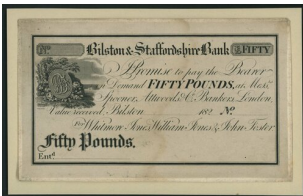 No. Bilston & Staffordshire Bank FIFTY
I Promise to pay the Bearer
on Demand FIFTY POUNDS, at Messrs.
Spooner, Attwood & Co. Bankers London,
Value received. Bilston 182 No.
For Whitmore Jones, William Jones & John Foster
Fifty Pounds.
Entd.